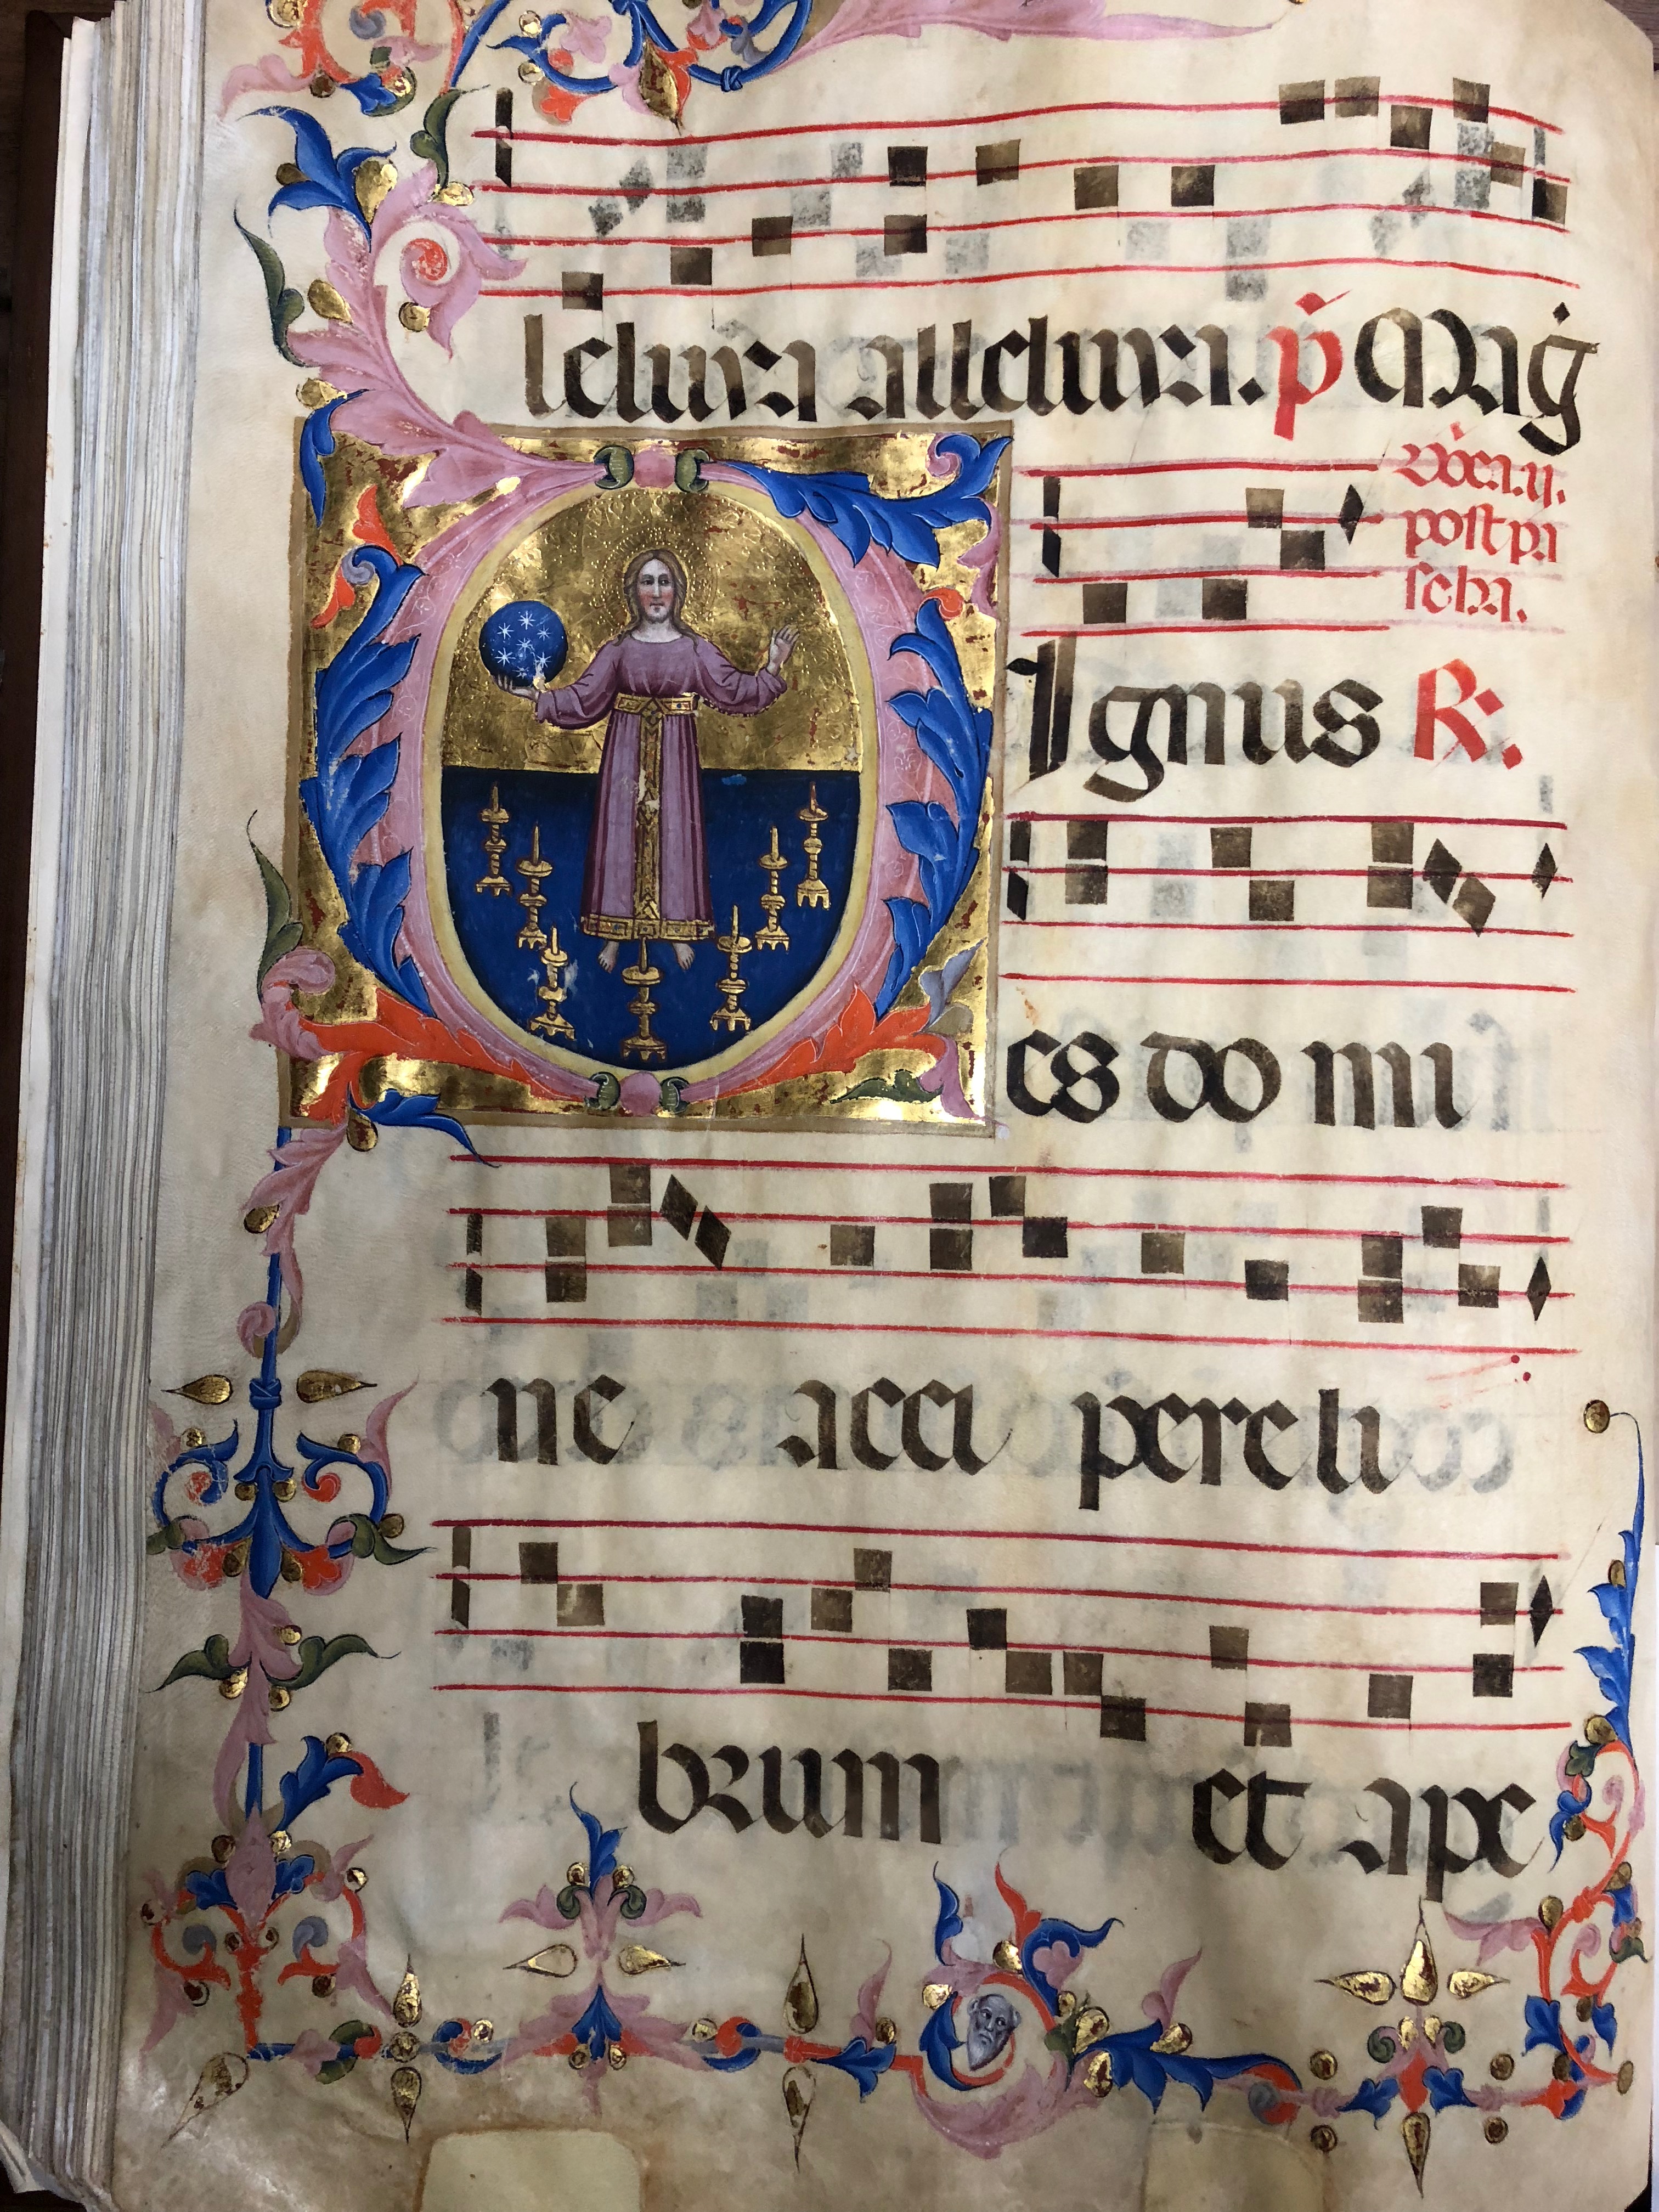 leluya alleluya. p̄ Maġ
Dñica.ij.
post pa
scha.
Ignus R.
es domi
ne acci pere li
brum et ape